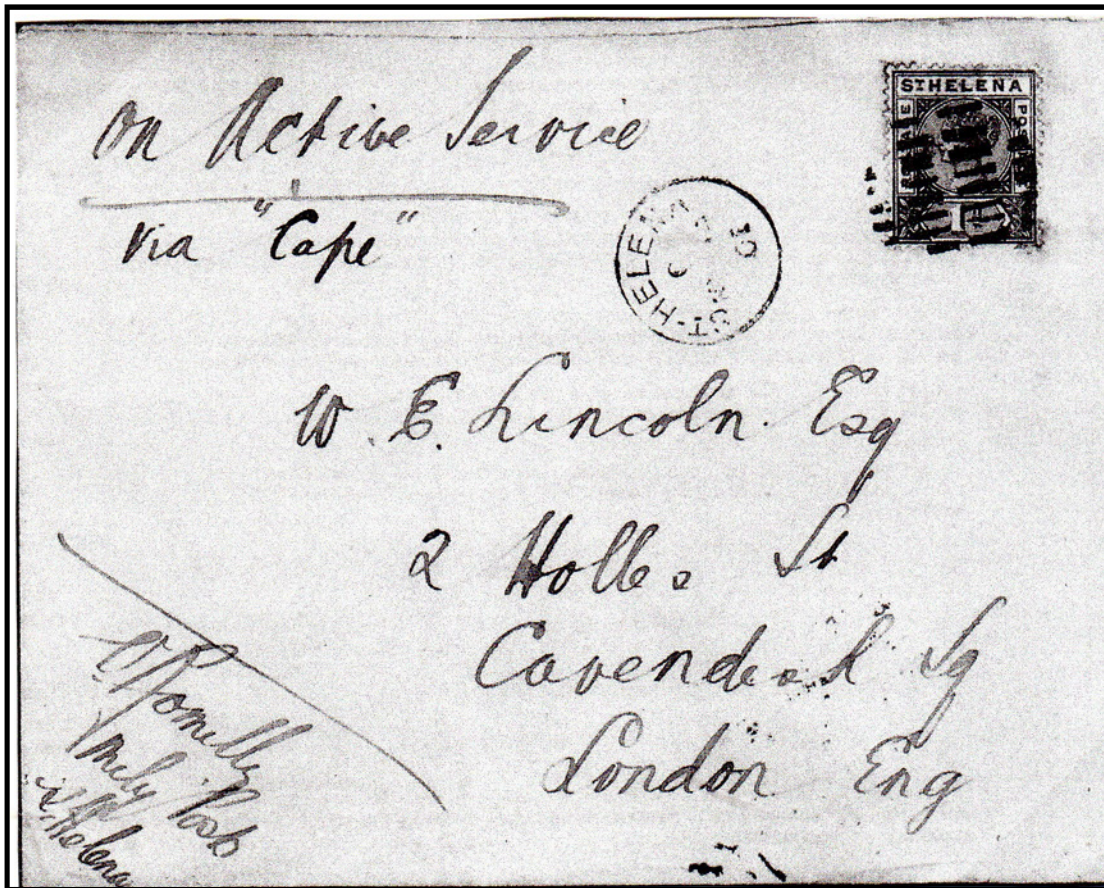 On Active Service
via "Cape"
ST HELENA
POSTAGE
ST·HELENA
W. E. Lincoln. Esq
2 Holles St
Cavendish Sq
London Eng
St. Helena